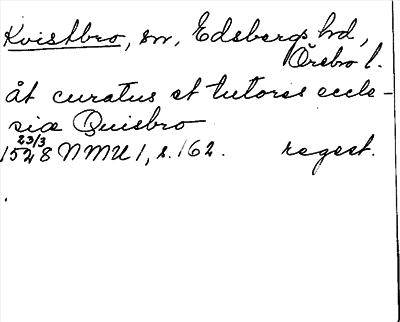 Kvistbro, sn, Edsbergs hd,
Örebro l.
åt curatus et tutores eccle-
siæ Quisbro
23/3
1528 NMU 1, s. 162. regest.